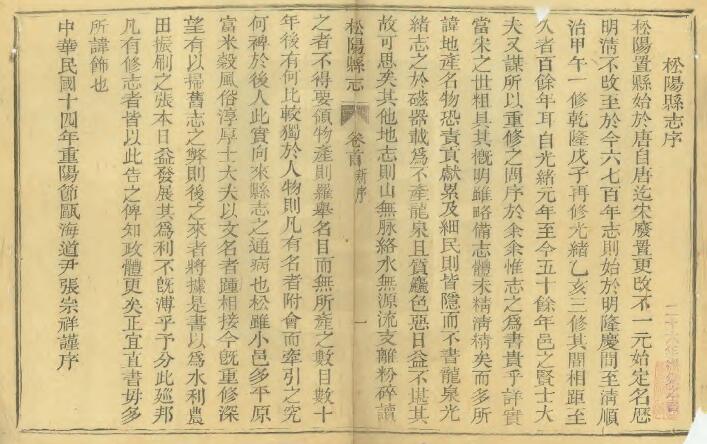 松陽縣志序
松陽置縣始於唐自唐迄宋廢置更改不一元始定名歷
明清不改至於今六七百年志則始於明隆慶間至清順
治甲午一修乾隆戊子再修光緒乙亥三修其間相距至
久者百餘年耳自光緒元年至今五十餘年邑之賢士大
夫又謀所以重修之問序於余余惟志之為書貴乎詳實
當宋之世粗具其概明雖略備志體未精清精矣而多所
諱地產名物恐責貢獻累及細民則皆隱而不書龍泉光
緒志之於磁器載為不產龍泉且質麤色惡日益不堪其
故可思矣其他地志則山無脉絡水無源流支離粉碎讀
松陽縣志
卷首 新序
一
之者不得要領物產則羅舉名目而無所產之數目數十
年後有何比較獨於人物則凡有名者附會而牽引之究
何裨於後人此實向來縣志之通病也松雖小邑多平原
富米穀風俗淳厚士大夫以文名者踵相接今旣重修深
望有以掃舊志之弊則後之來者將據是書以爲水利農
田振刷之張本日益發展其爲利不旣溥乎予分此廵邦
凡有修志者皆以此告之俾知政體更矣正宜直書毋多
所諱飾也
中華民國十四年重陽節甌海道尹張宗祥謹序